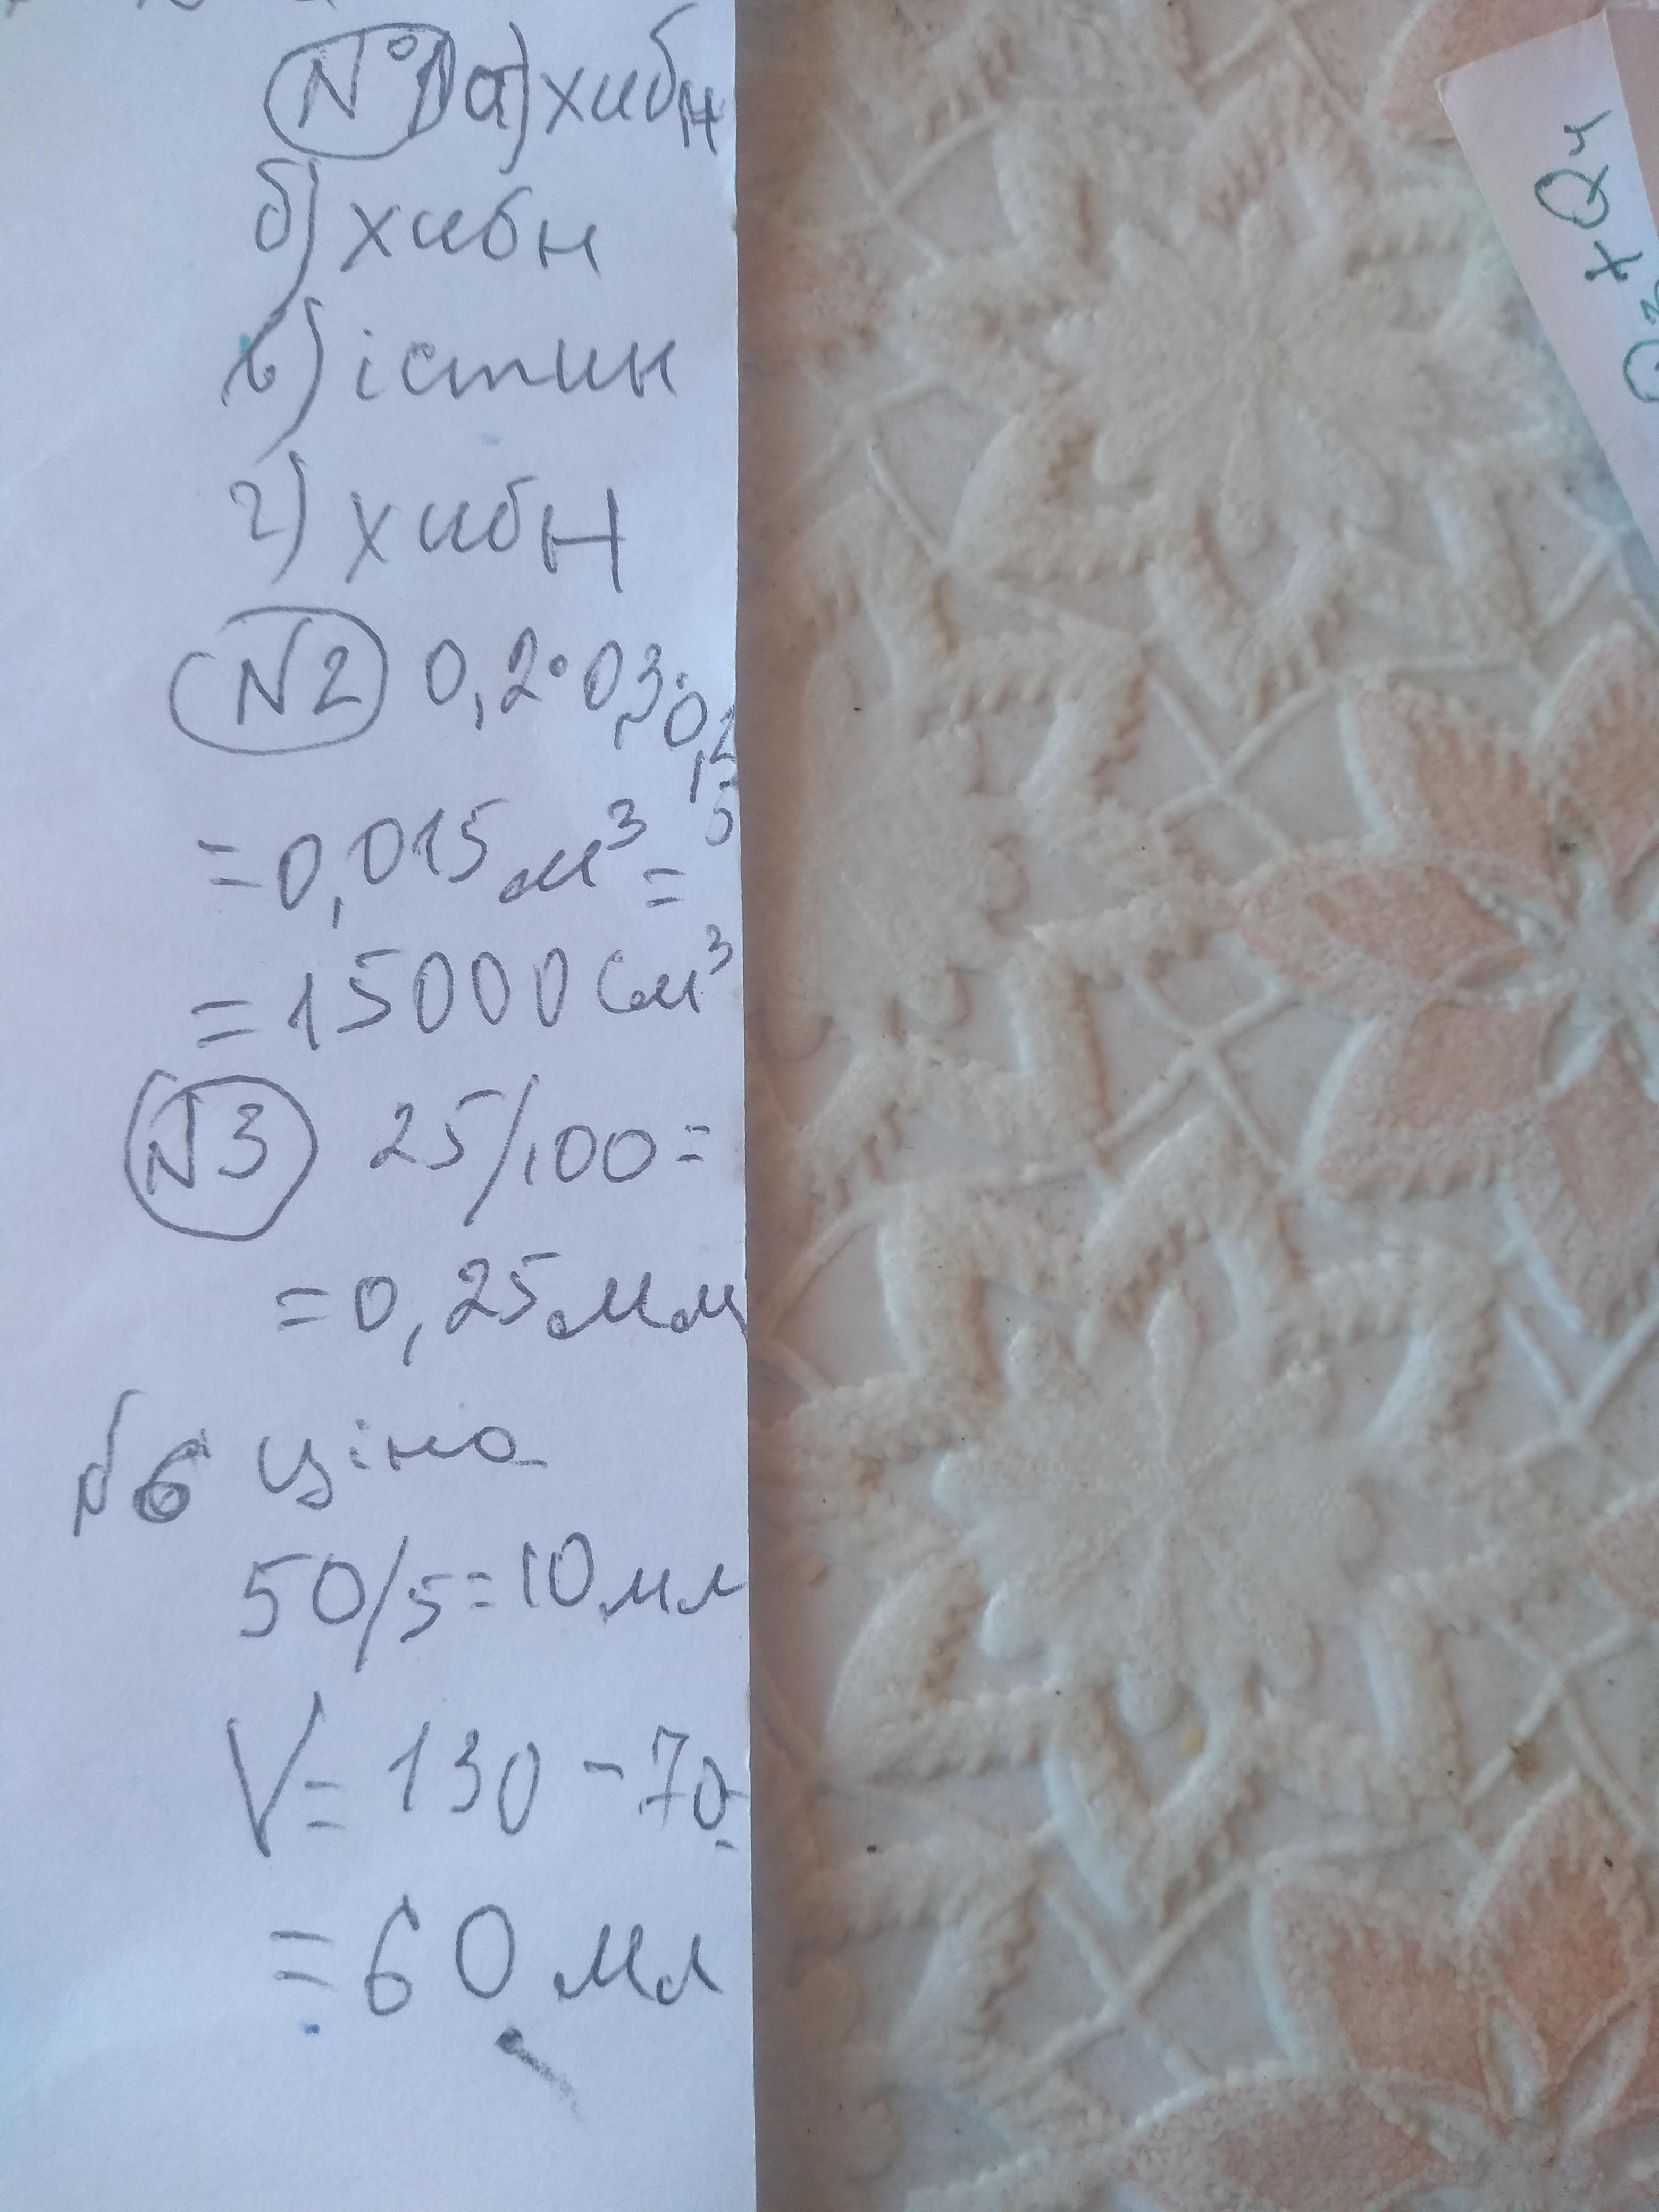 №1 а) хибн
б) хибн
в) істин
г) хибн
N2 0,2·0,3·0,25
=0,015м³=
=15000см³
N3 25/100=
=0,25мм
N6 ціна
50/5=10мл
V=130-70=
=60мл
xQ4